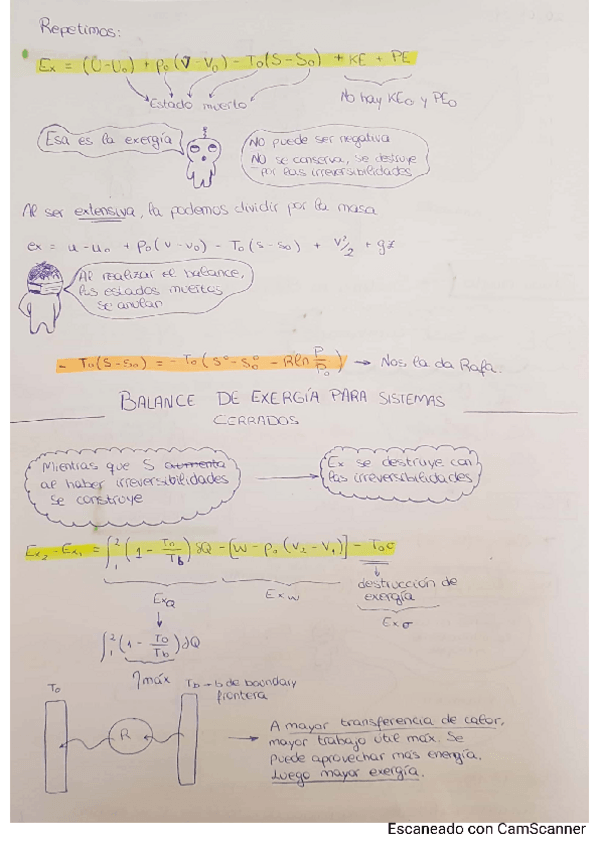 Repetimos:
Ex = (U-U₀) + p₀(V-V₀) - T₀(S-S₀) + KE + PE
Estado muerto
No hay KE₀ y PE₀
Esa es la exergía
NO puede ser negativa
NO se conserva, se destruye
por las irreversibilidades
Al ser extensiva, la podemos dividir por la masa
ex = u-u₀ + p₀(v-v₀) - T₀(s-s₀) + V²/2 + gz
Al realizar el balance,
los estados muertos
se anulan
- T₀(s-s₀) = - T₀(s° - s₀° - R ln P/P₀) → Nos la da Rafa.
BALANCE DE EXERGÍA PARA SISTEMAS
CERRADOS
Mientras que S aumenta
al haber irreversibilidades
se construye
Ex se destruye con
las irreversibilidades
Ex₂ - Ex₁ = ∫₁² (1 - T₀/Tb) δQ - [W - p₀(V₂ - V₁)] - T₀σ
destrucción de
exergía
Ex_Q
Ex_W
Ex_σ
∫₁² (1 - T₀/Tb) δQ
ηmáx
T₀
Tb → b de boundary
frontera
R
A mayor transferencia de calor,
mayor trabajo útil máx. Se
puede aprovechar más energía.
Luego mayor exergía.
Escaneado con CamScanner